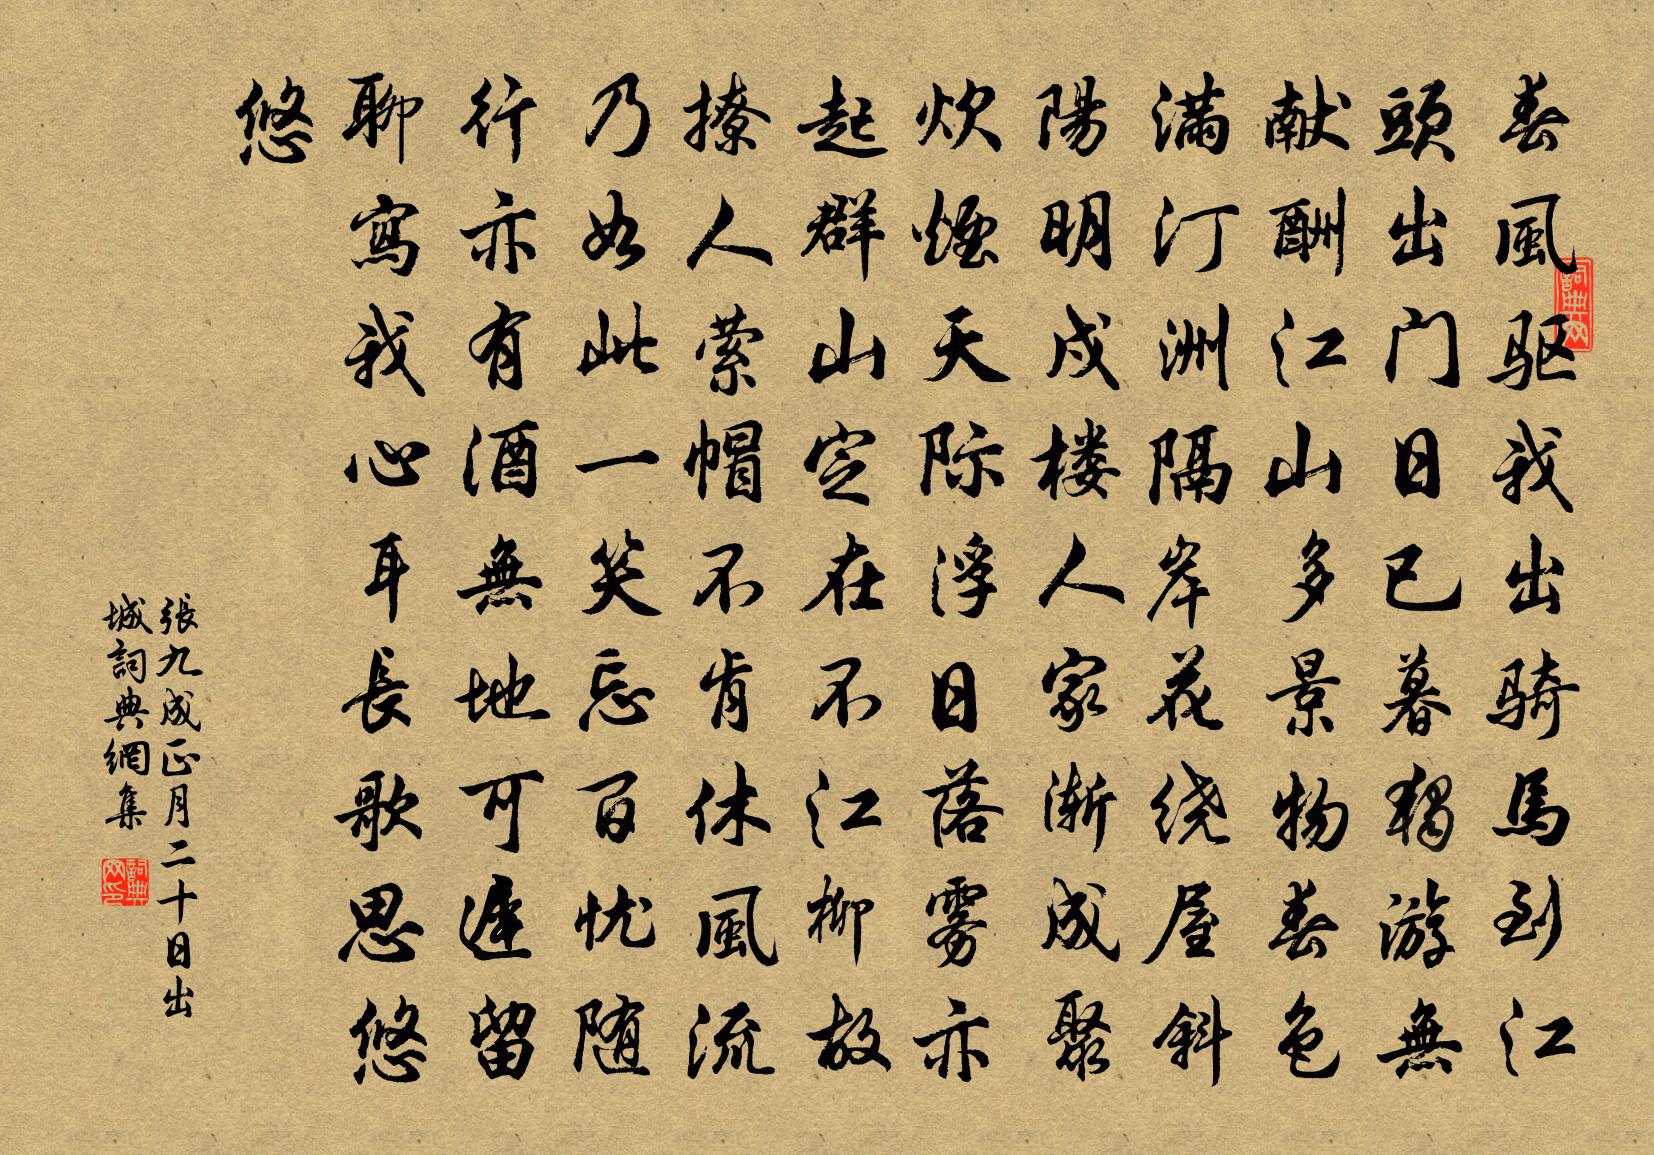 春風驱我出骑馬到江
頭出门日已暮独游無
献酬江山多景物春色
满汀洲隔岸花绕屋斜
陽明戍楼人家渐成聚
炊煙天际浮日落雾亦
起群山定在不江柳故
撩人萦帽不肯休風流
乃如此一笑忘百忧随
行亦有酒無地可遲留
聊寫我心耳長歌思悠
悠
張九成正月二十日出
城詞典網集
詞典网
詞典网印